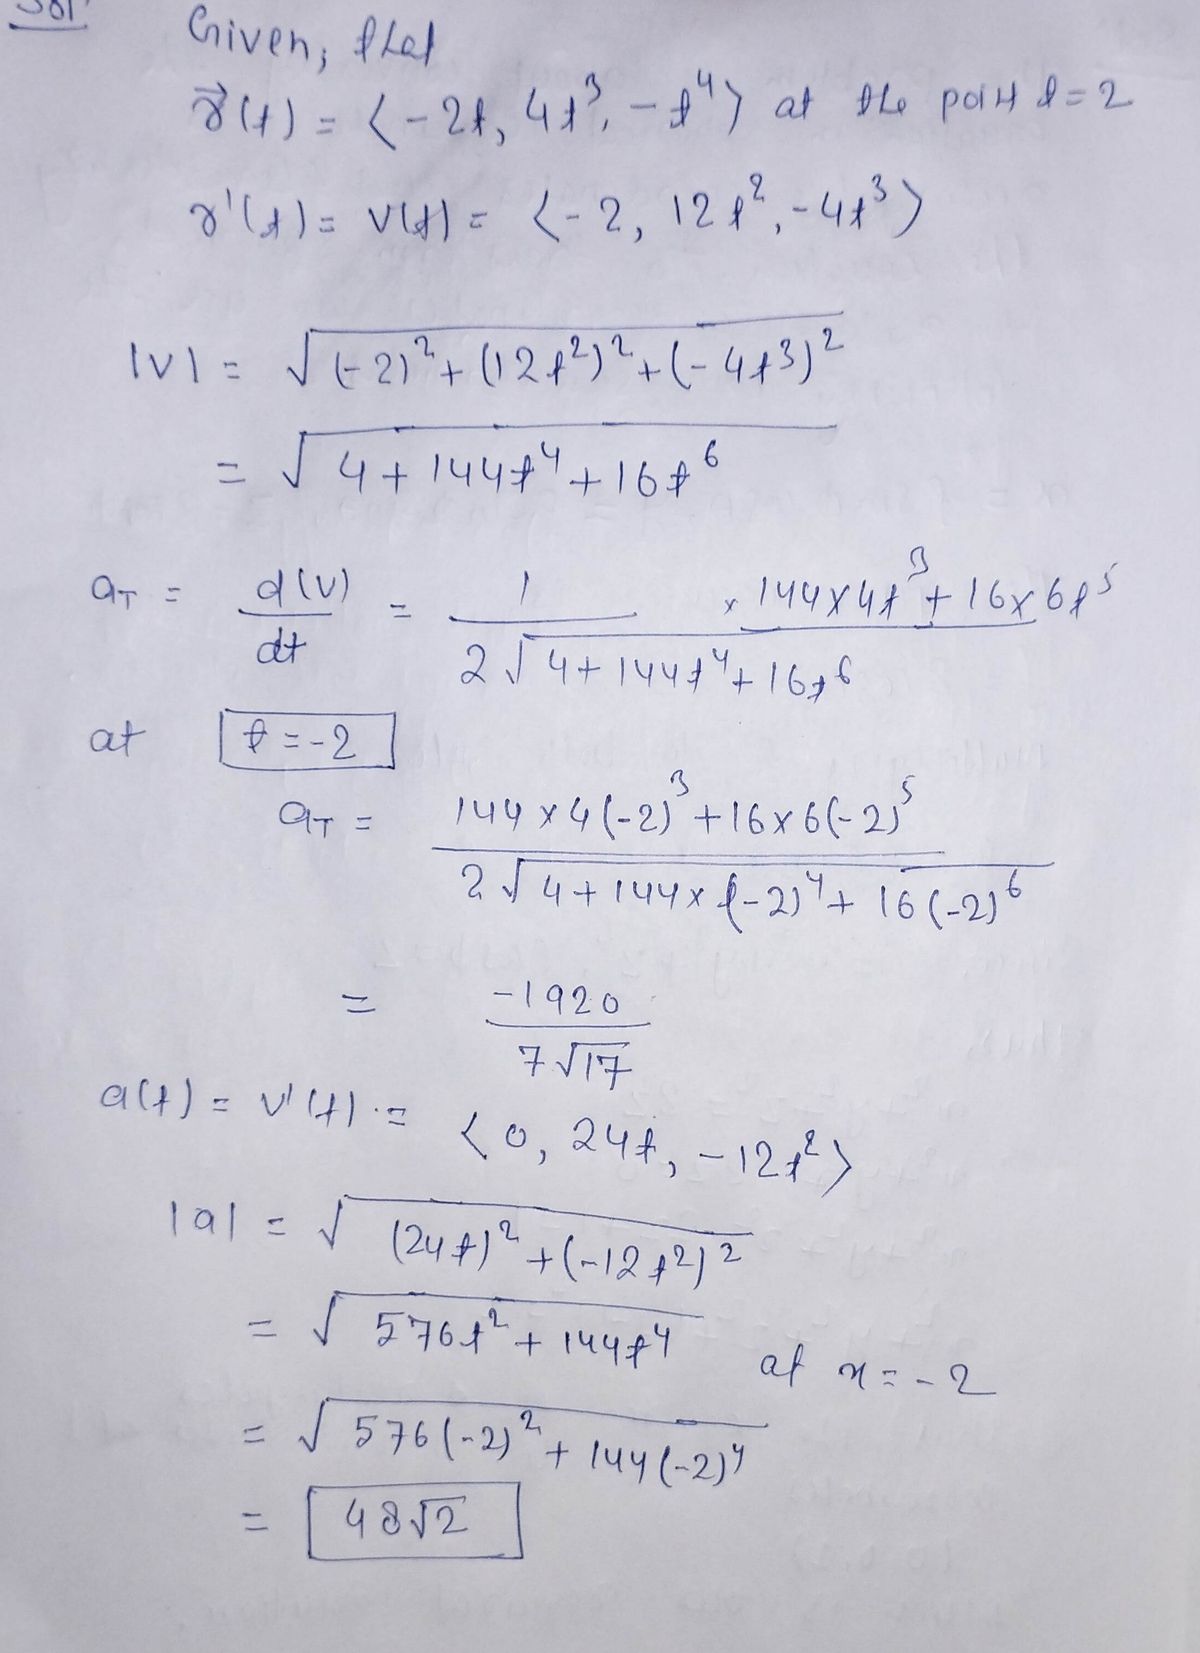 Sol.
Given, that
r⃗(t) = ⟨-2t, 4t³, -t⁴⟩ at the point t = 2
r'(t) = v(t) = ⟨-2, 12t², -4t³⟩
|v| = √((-2)² + (12t²)² + (-4t³)²)
= √(4 + 144t⁴ + 16t⁶)
a_T = d(v)/dt = 1/(2√(4 + 144t⁴ + 16t⁶)) × 144×4t³ + 16×6t⁵
at t = -2
a_T = (144×4(-2)³ + 16×6(-2)⁵)/(2√(4 + 144×(-2)⁴ + 16(-2)⁶))
= -1920/(7√17)
a(t) = v'(t) = ⟨0, 24t, -12t²⟩
|a| = √((24t)² + (-12t²)²)
= √(576t² + 144t⁴) at x = -2
= √(576(-2)² + 144(-2)⁴)
= 48√2